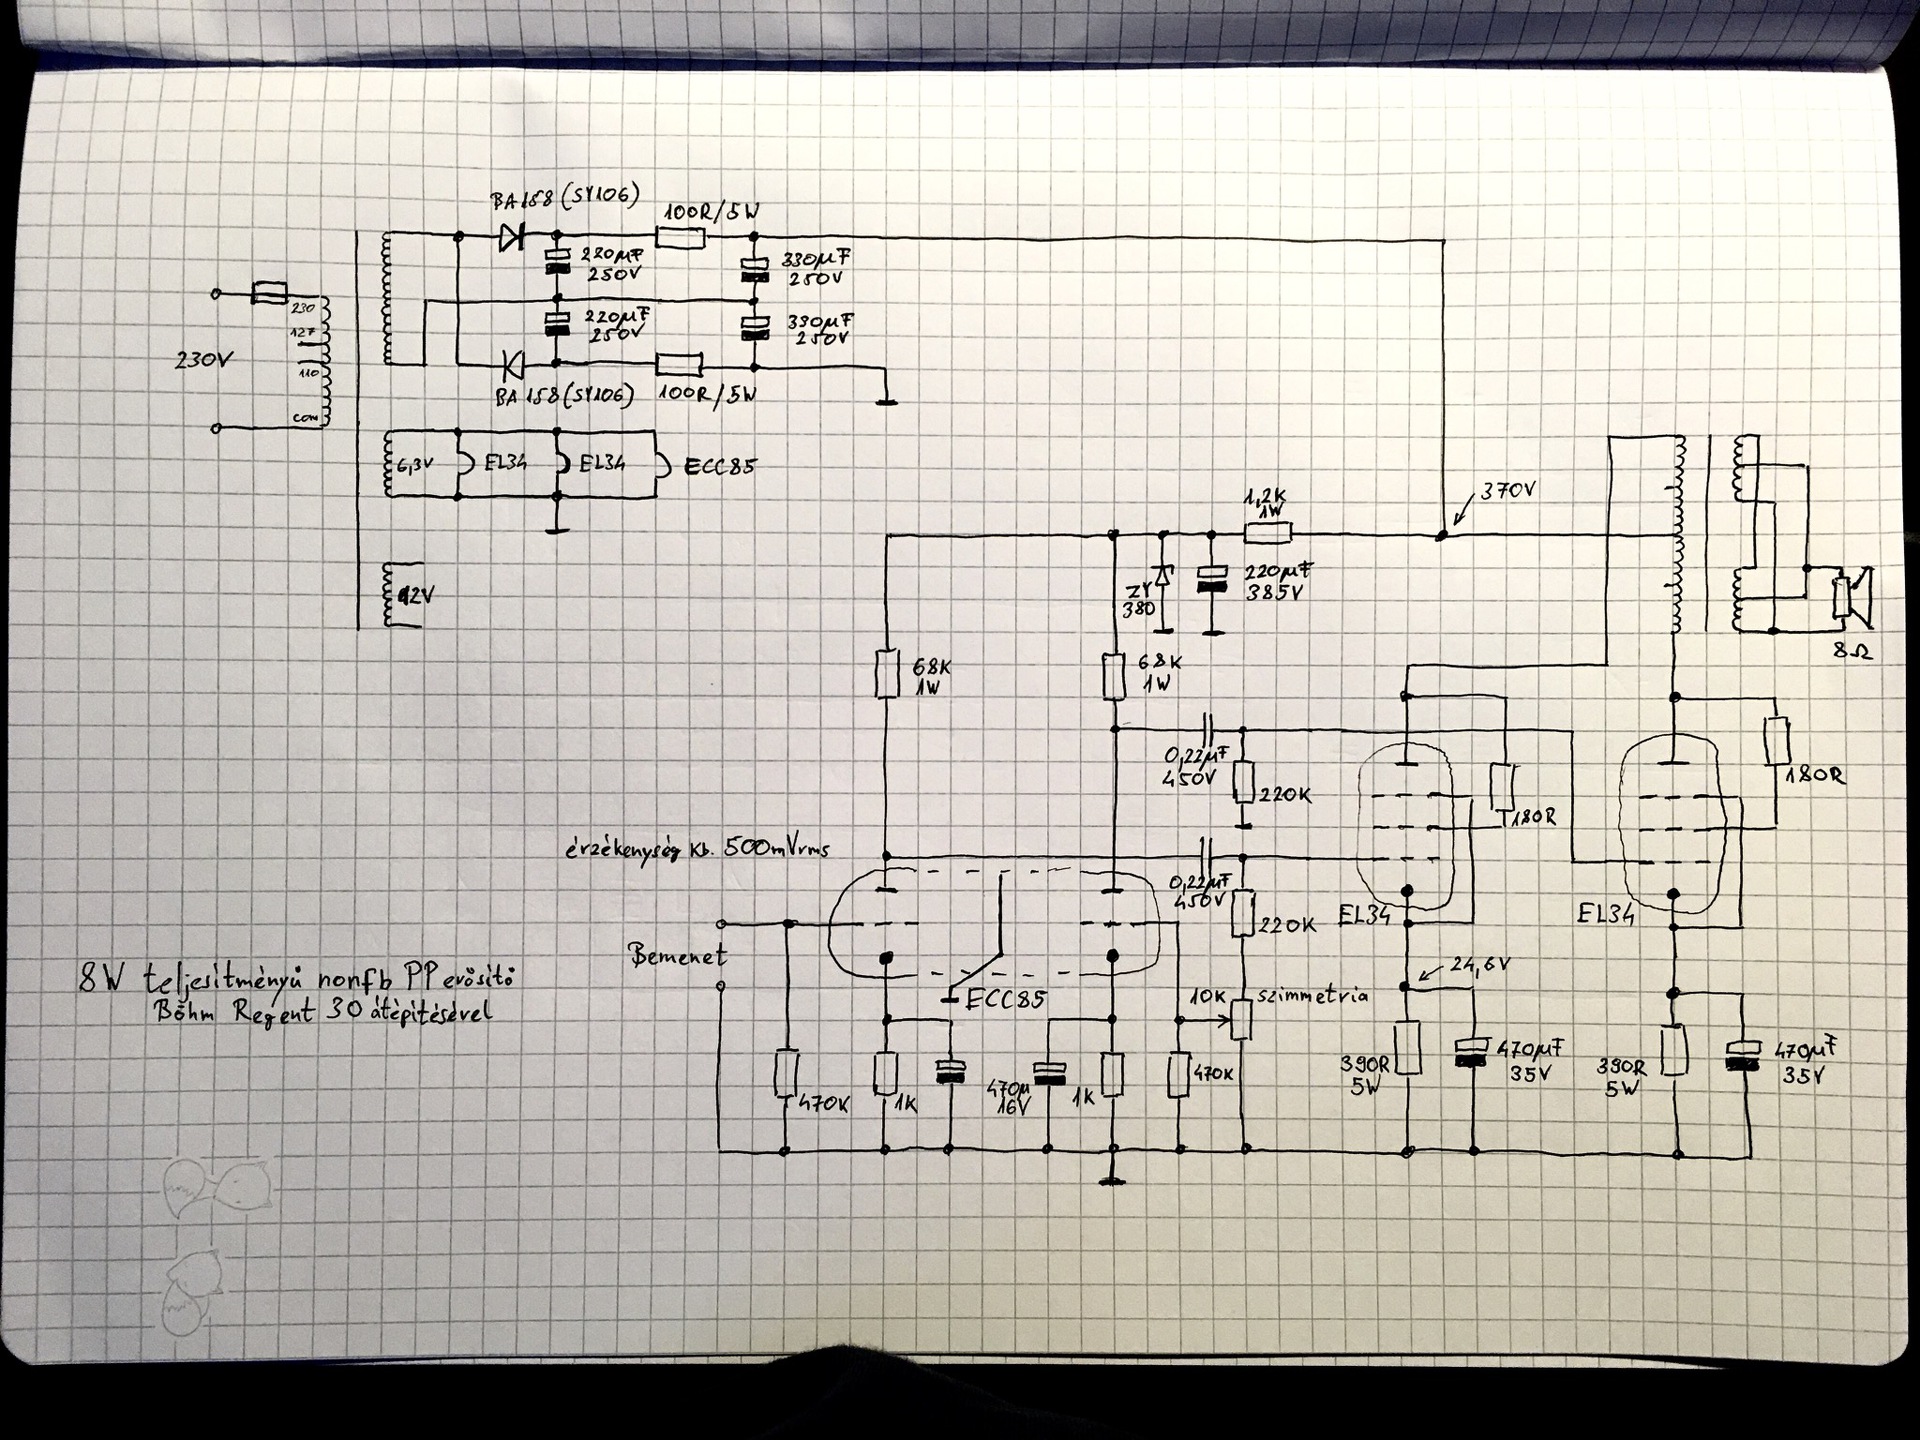 BA158 (SY106)
100R/5W
220µF
250V
330µF
250V
230
127
230V
110
com
220µF
250V
330µF
250V
BA158 (SY106)
100R/5W
6,3V
EL34
EL34
ECC85
12V
1,2K
1W
370V
ZY
380
220µF
385V
8Ω
68K
1W
68K
1W
0,22µF
450V
220K
180R
180R
érzékenység kb. 500mVrms
0,22µF
450V
220K
EL34
EL34
Bemenet
24,6V
ECC85
10K
szimmetria
8W teljesítményű nonfb PP erősítő
Böhm Regent 30 átépítésével
470K
1K
470µ
16V
1K
470K
390R
5W
470µF
35V
390R
5W
470µF
35V